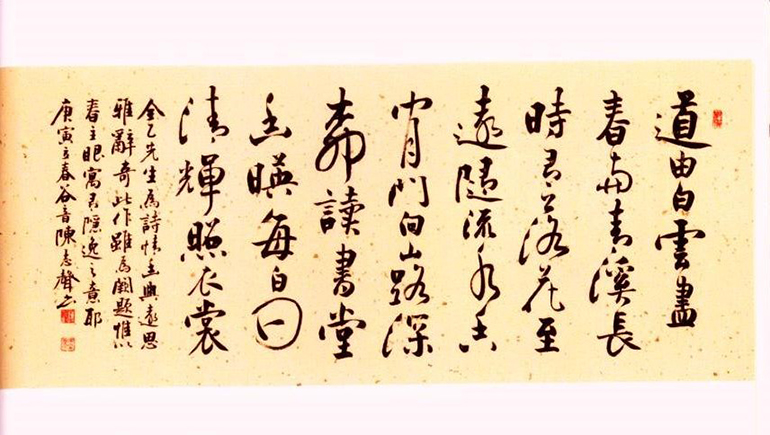 道由白雲盡
春与青溪長
時有落花至
遠隨流水香
閒門向山路深
柳讀書堂
幽暎每白日
清輝照衣裳
全乙先生為詩情幽興遠思
雅辭奇此作雖為闕題惟以
春主眼寓有隱逸之意耶
庚寅立春谷音陳志聲